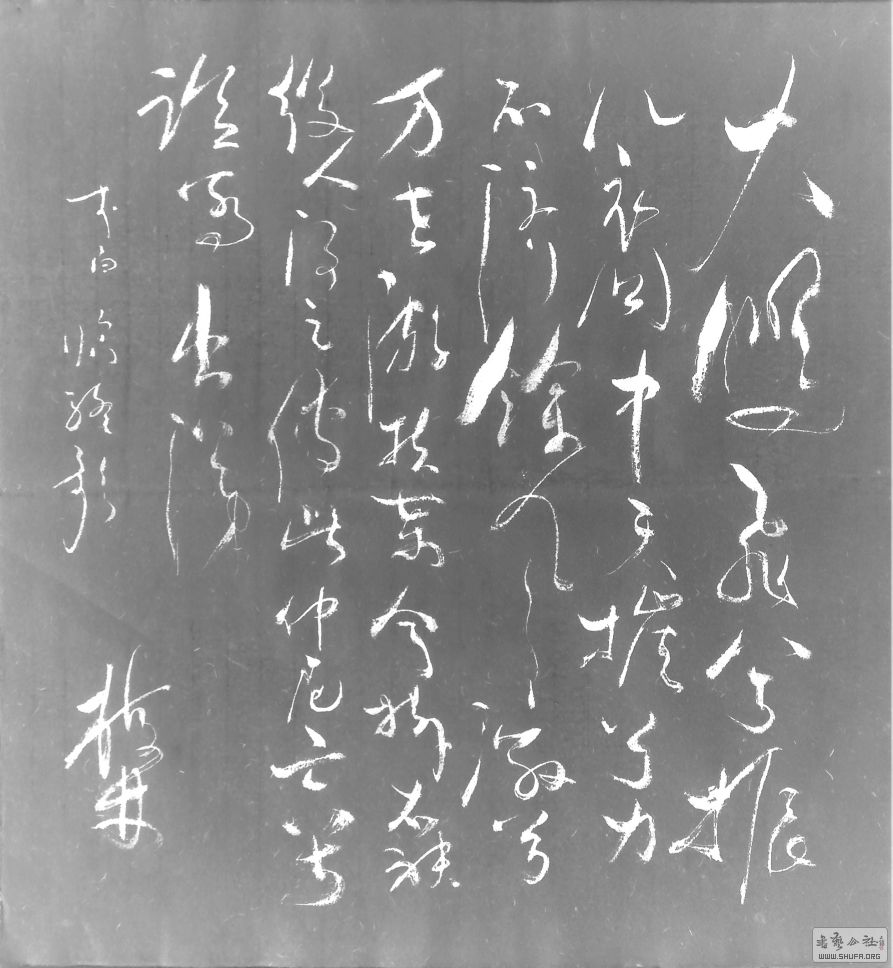 大鵬飛兮振
八裔中天摧兮力
不济餘風激兮
万世游扶桑兮掛石袂
後人得之傳此仲尼亡兮
誰為出涕
李白臨路歌
書藝公社
WWW.SHUFA.ORG